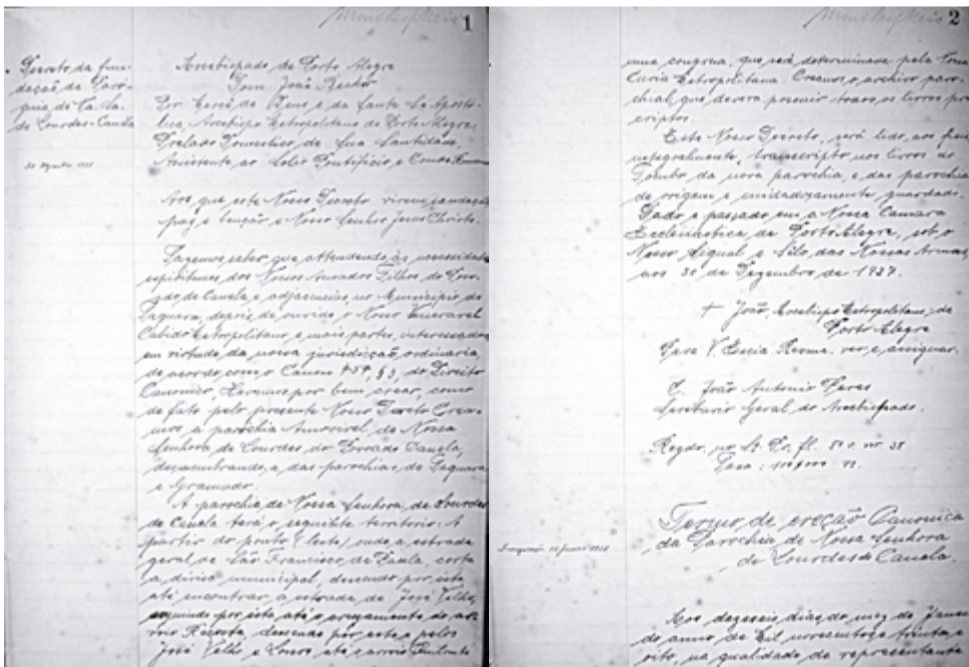 1
Decreto da fun-
dação da Paró-
quia de N. Sa.
de Lourdes-Canela
Arcebispado de Porto Alegre
Dom João Becker
Por Mercê de Deus e da Santa Sé Aposto-
lica, Arcebispo Metropolitano de Porto Alegre,
Prelado Domestico de Sua Santidade,
Assistente ao Solio Pontificio e Conde Romano
Aos que este Nosso Decreto virem, saudação
paz e benção e Nosso Senhor Jesus Christo.
Fazemos saber que, attendendo ás necessidades
espirituaes dos Nossos Amados Filhos do Povoa-
do de Canela e adjacencias, no Municipio de
Taquara, depois de ouvido o Nosso Veneravel
Cabido Metropolitano e mais partes interessadas
em virtude da nossa jurisdicção ordinaria,
de acordo com o Canon § 3, do Direito
Canonico, Havemos por bem crear, como
de fato pelo presente Nosso Decreto Crea-
mos a paróchia Amovivel de Nossa
Senhora de Lourdes do Canela,
desmembrando-a das parochias de Taquara
e Gramado.
A parochia de Nossa Senhora de Lourdes
de Canela terá o seguinte territorio: A
partir do ponto (Leste), onde a estrada
geral de São Francisco de Paula corta
a divisa municipal, descendo por esta
até encontrar a estrada de José Velho,
seguindo por esta até o cruzamento do ar-
roio descendo por este e pelos
José Velho e Louro até arroio
2
uma congrua, que será determinada pela Nossa
Curia Metropolitana. Creamos o archivo paro-
chial, que deverá possuir todos os livros pres-
criptos.
Este Nosso Decreto, será lido aos fieis
integralmente, transcripto nos livros do
Tombo da nova parochia, e das parochias
de origem e cuidadosamente guardado.
Dado e passado em a Nossa Camara
Ecclesiastica de Porto Alegre, sob o
Nosso Signal e Sêlo das Nossas Armas,
aos 30 de Dezembro de 1937.
† João, Arcebispo Metropolitano de
Porto Alegre
Para V. Excia Revma. ver e assignar.
C. João Antonio Peres
Secretario Geral do Arcebispado.
Regdo. no fl. nr 38
Taxa:
Termo de ereção Canonica
da Parochia de Nossa Senhora
de Lourdes de Canela.
Aos dezeseis dias do mez de Janeiro
do anno de Mil novecentos e trinta e
oito, na qualidade de representante